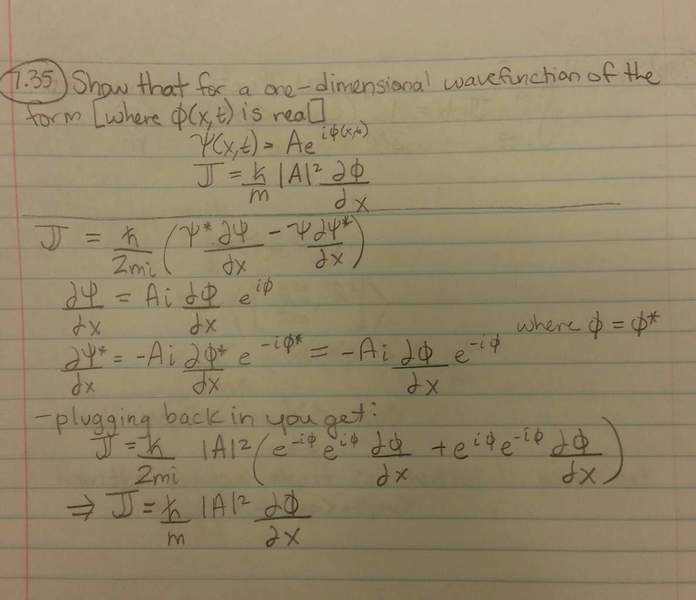 7.35) Show that for a one-dimensional wavefunction of the
form [where ϕ(x,t) is real]
Ψ(x,t) = Ae^{iϕ(x,t)}
J = ℏ/m |A|² ∂ϕ/∂x
J = ℏ/2mi (Ψ* ∂Ψ/∂x − Ψ ∂Ψ*/∂x)
∂Ψ/∂x = Ai ∂ϕ/∂x e^{iϕ}
∂Ψ*/∂x = -Ai ∂ϕ*/∂x e^{-iϕ*} = -Ai ∂ϕ/∂x e^{-iϕ} where ϕ = ϕ*
-plugging back in you get:
J = ℏ/2mi |A|² (e^{-iϕ} e^{iϕ} ∂ϕ/∂x + e^{iϕ} e^{-iϕ} ∂ϕ/∂x)
⇒ J = ℏ/m |A|² ∂ϕ/∂x